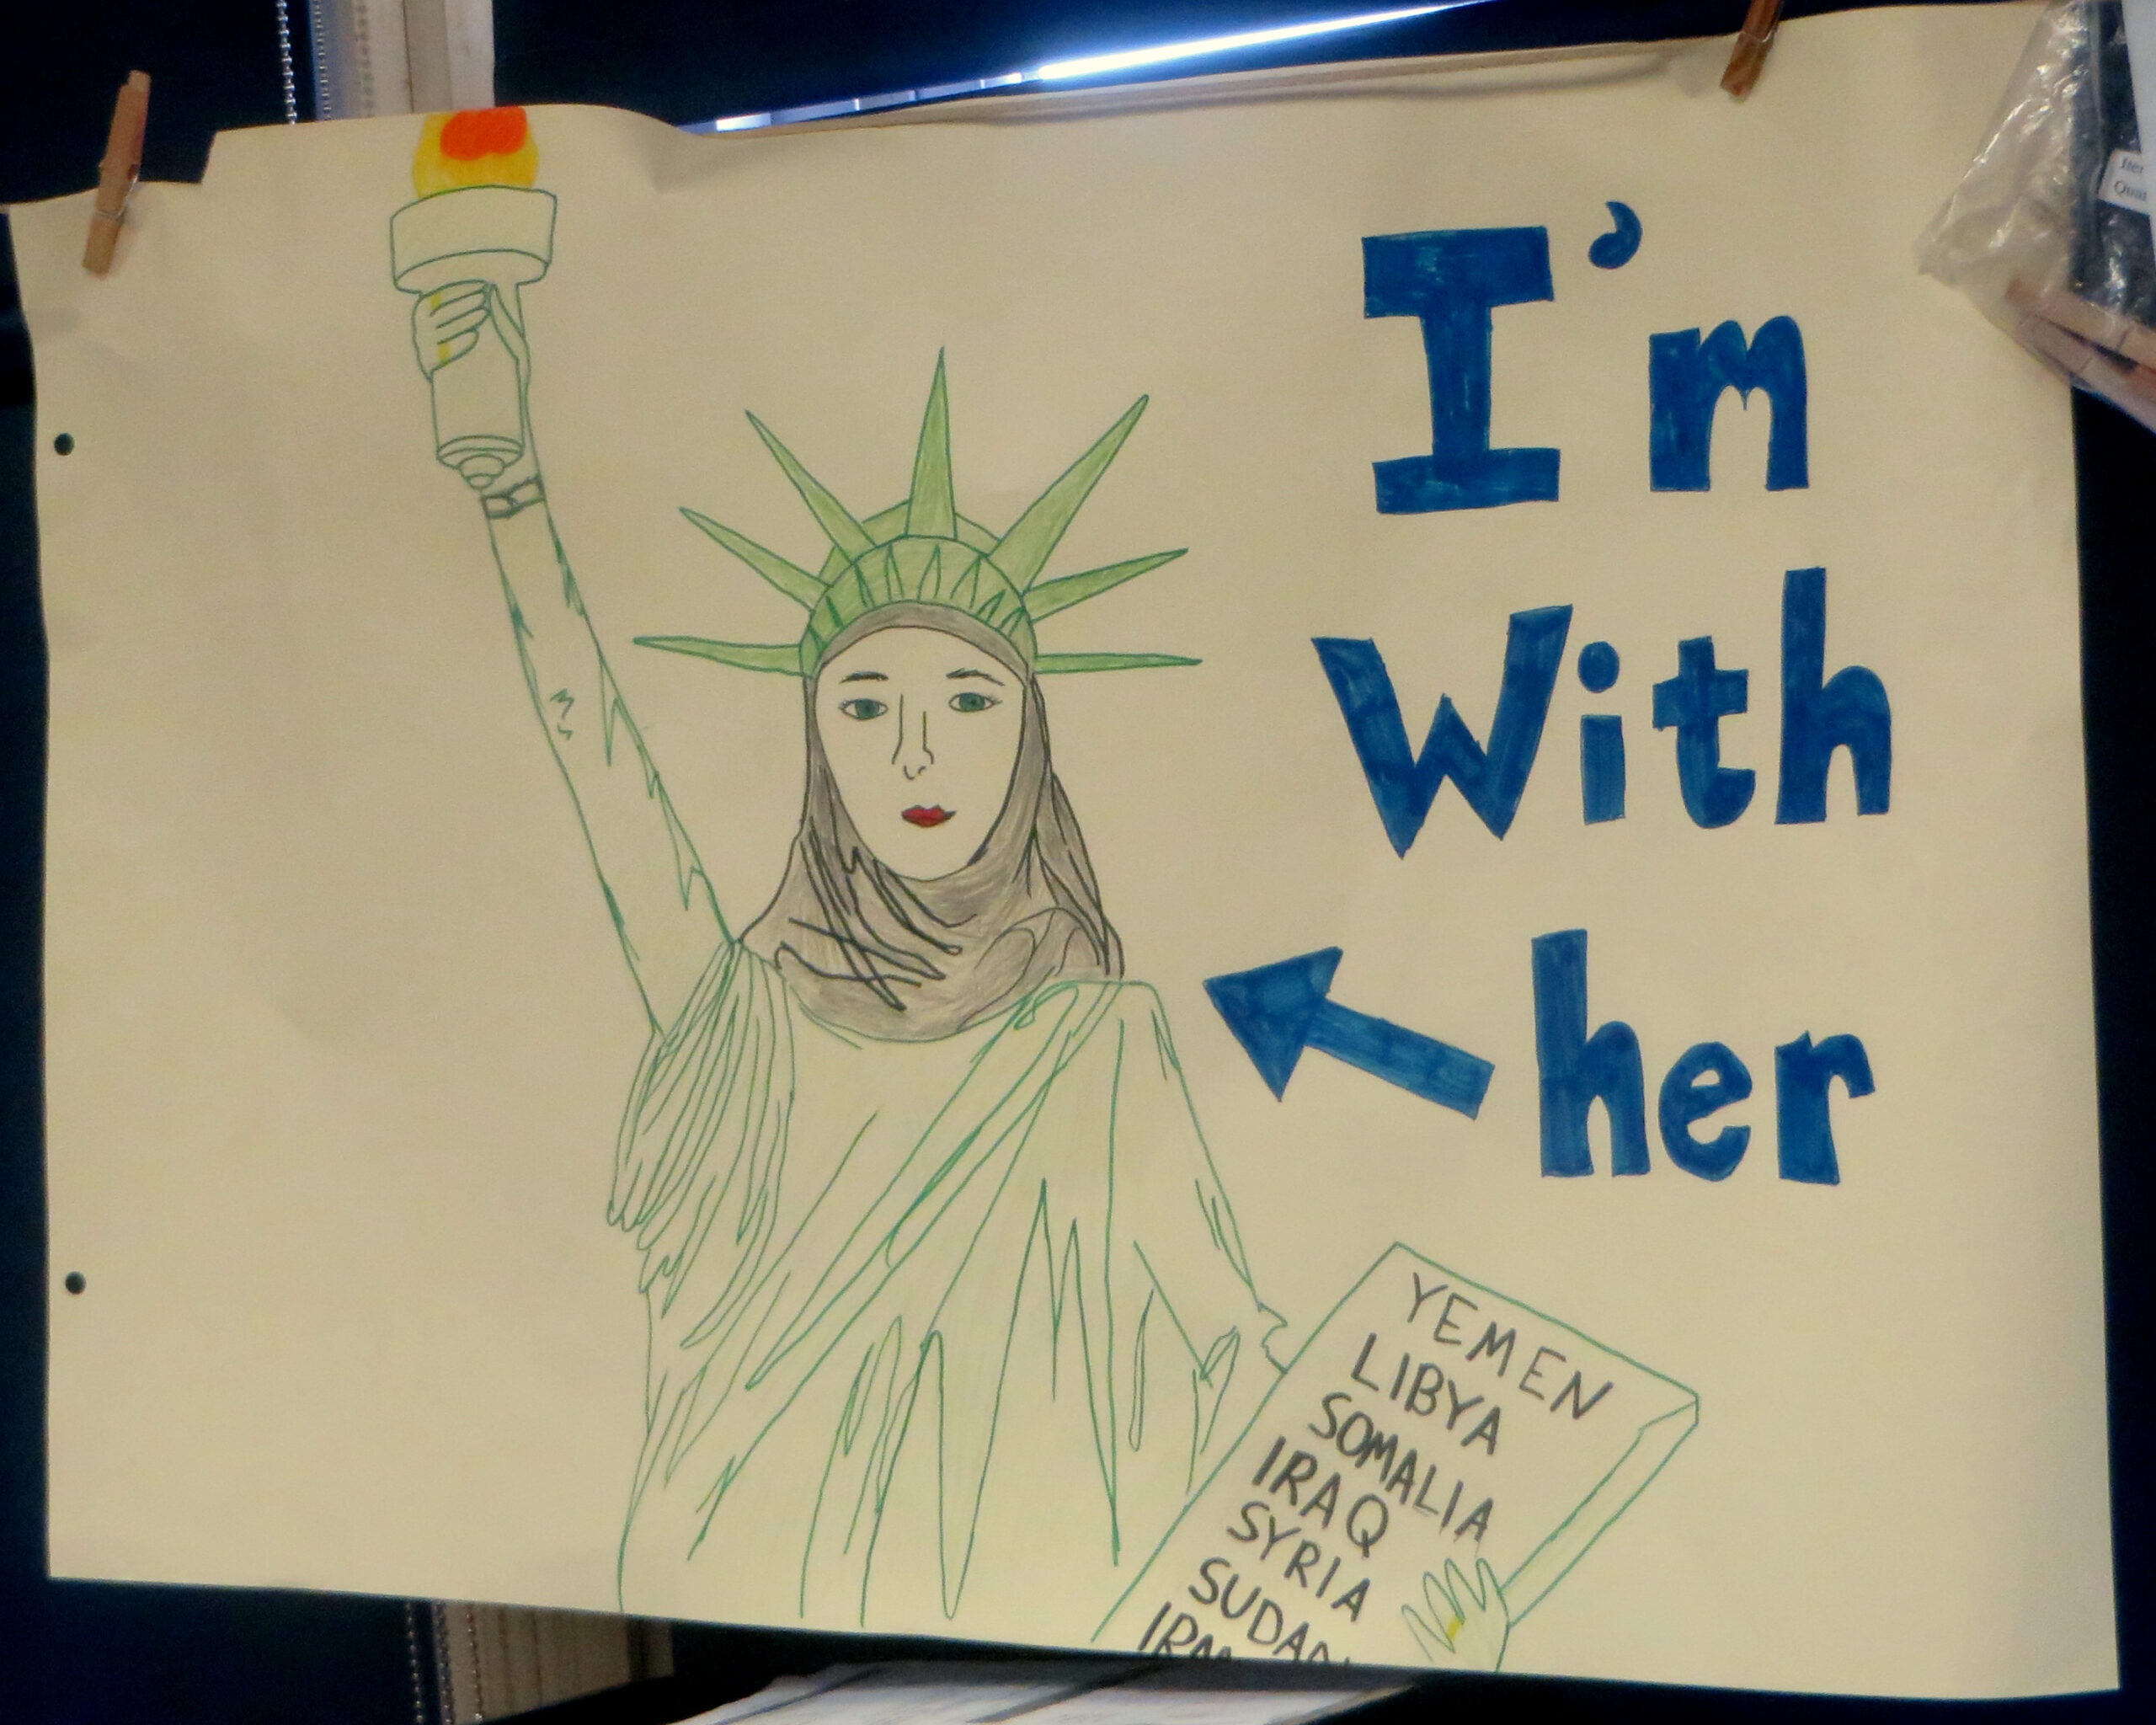 I'm
With
her
YEMEN
LIBYA
SOMALIA
IRAQ
SYRIA
SUDAN